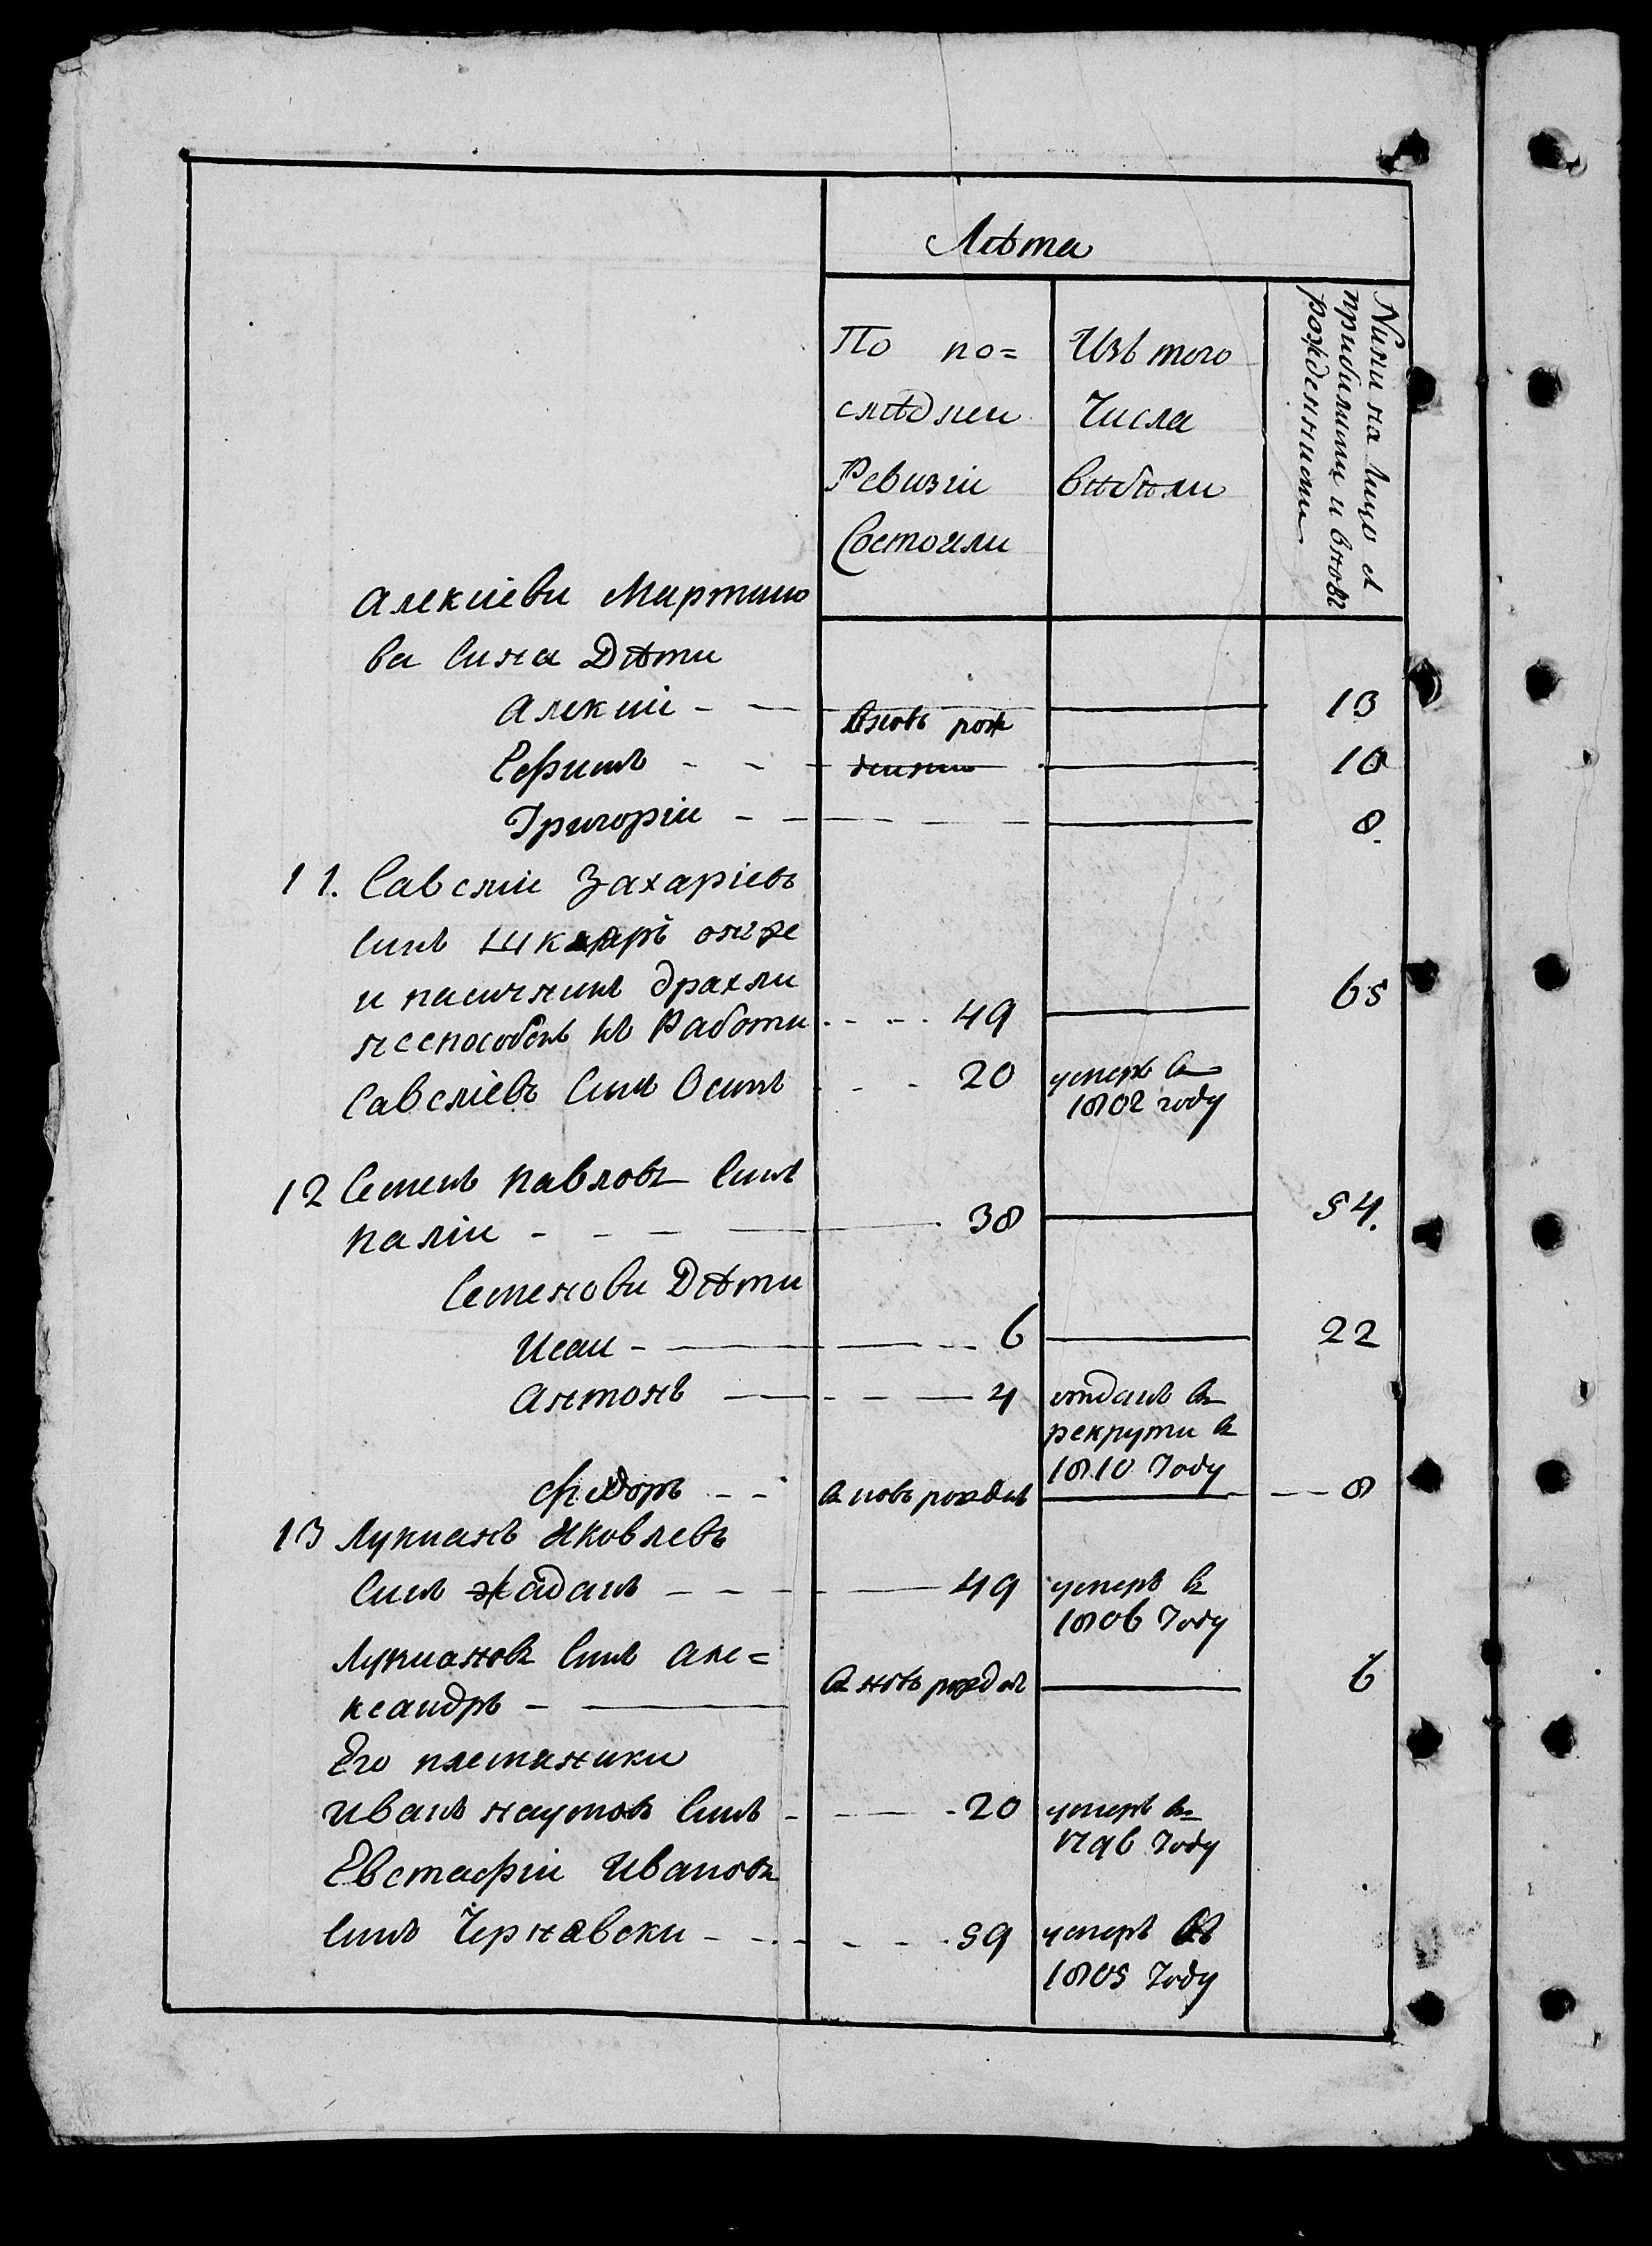 Лѣта
По по=
слѣднеи
Ревизіи
Состояли
Изъ того
Числа
вибили
Нини на лицо с
прибилими и вновь
рожденними
Алексіеви Мартино
ва Сина Дѣти
Алексіи - — 13
вновь рож
Сефимъ - - денни 10
Григоріи - — 8.
11. Савеліи Захаріевъ
Синъ Шкляръ онже
и пасичникъ драхли
неспособенъ къ Работи - - - 49 65
Савеліевъ Синъ Осипъ - - 20 умеръ въ
1802 году
12 Семенъ Павловъ Синъ
Паліи - - - — 38 54.
Семенови Дѣти
Исаи - — 6 22
Антонъ — - - — 4 отданъ въ
рекрути въ
1810 Году
Федоръ - - вновь рожденъ - — 8
13 Лукианъ Яковлевъ
Синъ Жаданъ - - - — 49 умеръ въ
1806 Году
Лукиановъ Синъ Але=
ксандръ - — вновь рожденъ 6
Его племяники
Иванъ наумовъ Синъ - - — 20 умеръ въ
1796 Году
Евстафіи Ивановъ
Синъ Чернавски - - - - - 59 умеръ въ
1805 Году